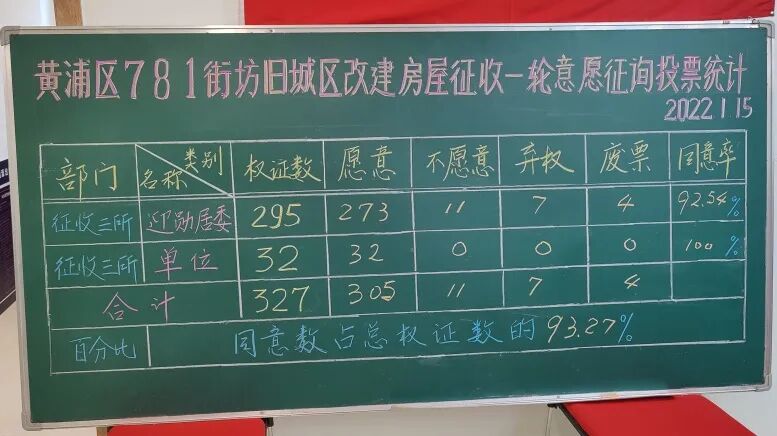 黄浦区781街坊旧城区改建房屋征收一轮意愿征询投票统计
2022.1.15
部门 名称 类别 权证数 愿意 不愿意 弃权 废票 同意率
征收三所 迎勋居委 295 273 11 7 4 92.54%
征收三所 单位 32 32 0 0 0 100%
合计 327 305 11 7 4
百分比 同意数占总权证数的93.27%